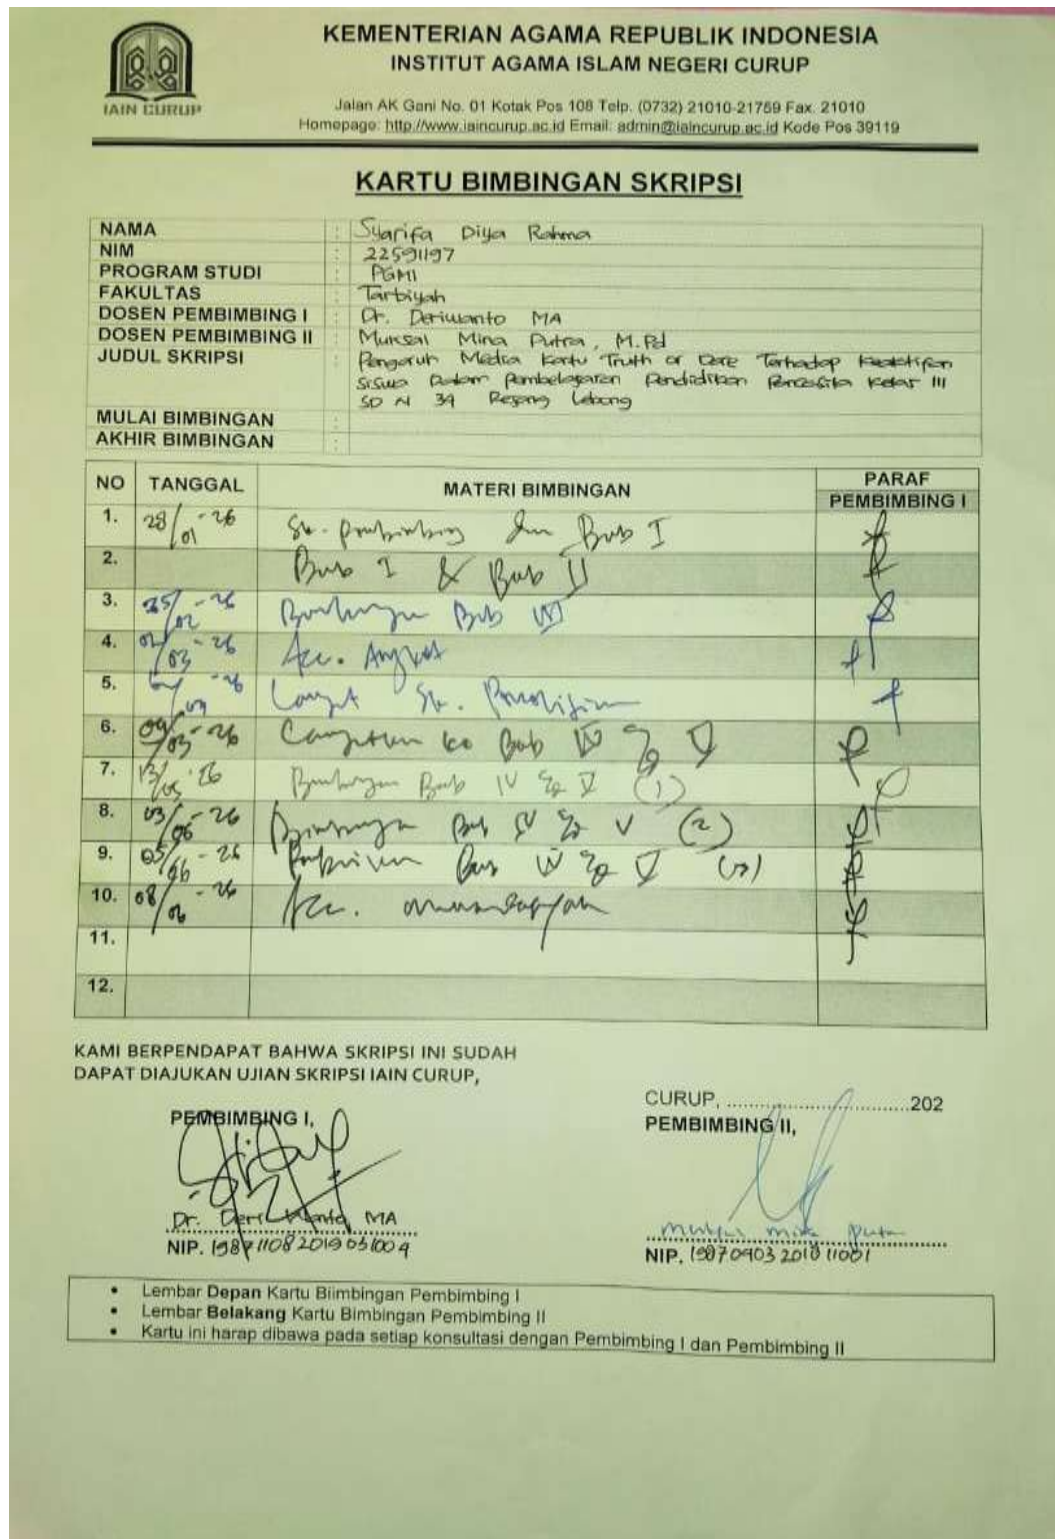 KEMENTERIAN AGAMA REPUBLIK INDONESIA
INSTITUT AGAMA ISLAM NEGERI CURUP
IAIN CURUP
Jalan AK Gani No. 01 Kotak Pos 108 Telp. (0732) 21010-21759 Fax. 21010
Homepage: http://www.iaincurup.ac.id Email: admin@iaincurup.ac.id Kode Pos 39119
KARTU BIMBINGAN SKRIPSI
NAMA : Syarifa Diya Rahma
NIM : 22591197
PROGRAM STUDI : PGMI
FAKULTAS : Tarbiyah
DOSEN PEMBIMBING I : Dr. Deriwanto MA
DOSEN PEMBIMBING II : Muksal Mina Putra, M.Pd
JUDUL SKRIPSI : Pengaruh Media Kartu Truth or Dare Terhadap Keaktifan
Siswa Dalam Pembelajaran Pendidikan Pancasila Kelas III
SD N 39 Rejang Lebong
MULAI BIMBINGAN :
AKHIR BIMBINGAN :
NO TANGGAL MATERI BIMBINGAN PARAF
PEMBIMBING I
1. 28/01-26 Bab I
2. Bab I & Bab II
3. 25/02-26 Bab III
4. 02/03-26 Acc. Angket
5. Lanjut Sk. Penelitian
6. 09/03-26 ke Bab IV V
7. 13/05-26 Bimbingan Bab IV V (1)
8. 03/06-26 Bab IV V (2)
9. 05/06-26 Bab IV V
10. 08/06-26 Acc.
11.
12.
KAMI BERPENDAPAT BAHWA SKRIPSI INI SUDAH
DAPAT DIAJUKAN UJIAN SKRIPSI IAIN CURUP,
CURUP, ..............................202
PEMBIMBING I,
PEMBIMBING II,
Dr. Deriwanto, MA
NIP. 198711082019031004
Muksal Mina Putra
NIP. 19870903201811001
• Lembar Depan Kartu Biimbingan Pembimbing I
• Lembar Belakang Kartu Bimbingan Pembimbing II
• Kartu ini harap dibawa pada setiap konsultasi dengan Pembimbing I dan Pembimbing II